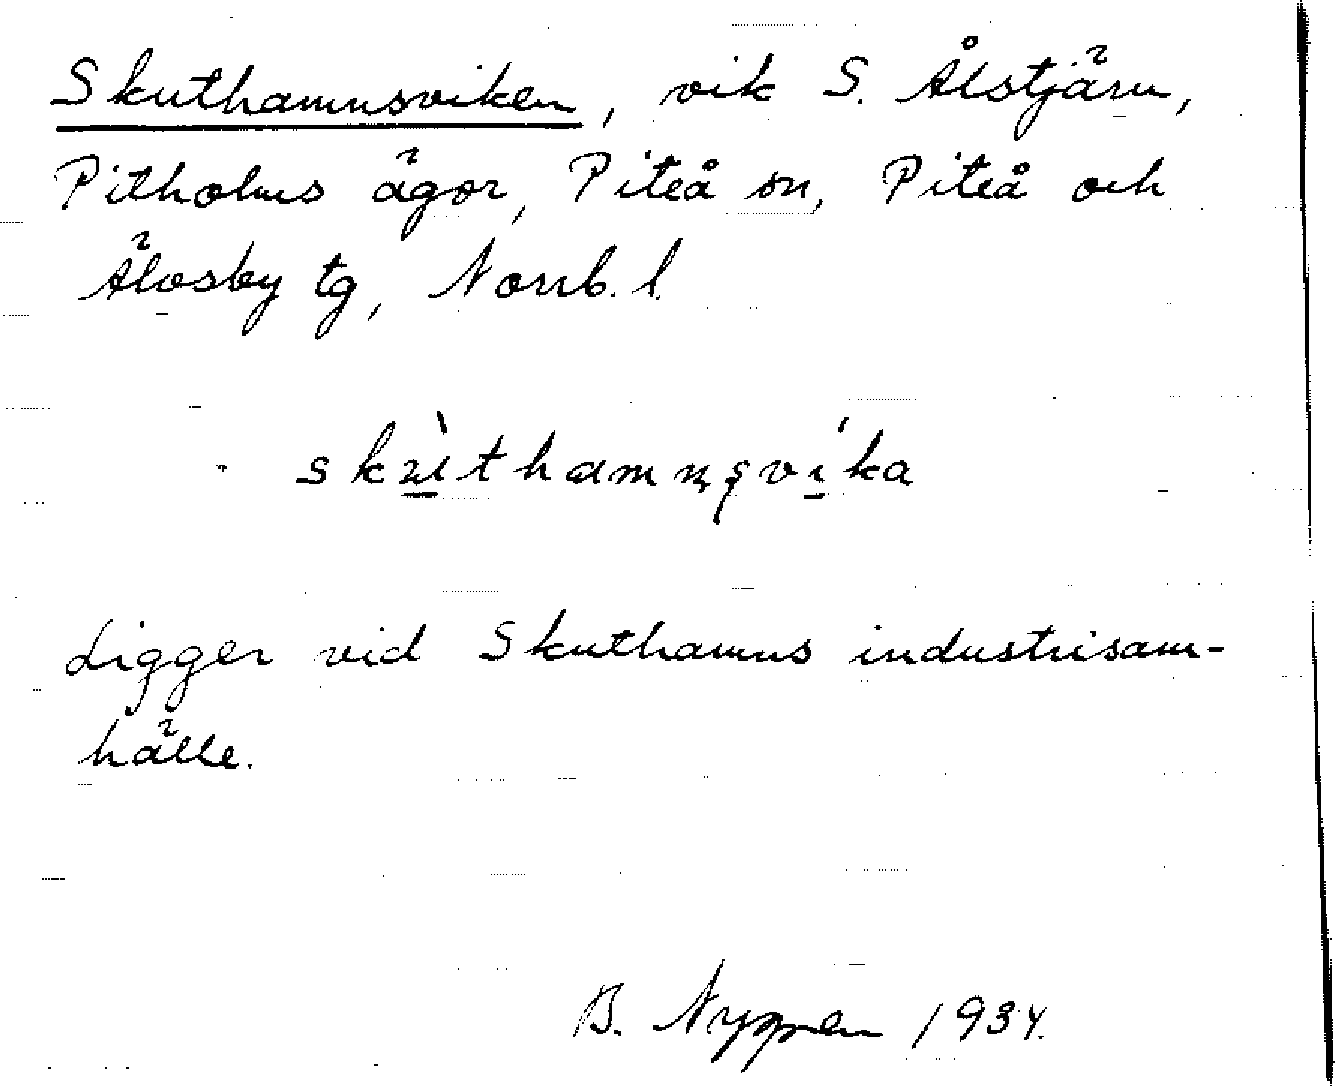 Skuthamnsviken, vik S. Ålstjärn,
Pitholms ägor, Piteå sn, Piteå och
Älvsby tg, Norrb. l.
skùthamnṣvíka
Ligger vid Skuthamns industrisam-
hälle.
B. Nyppen 1934.